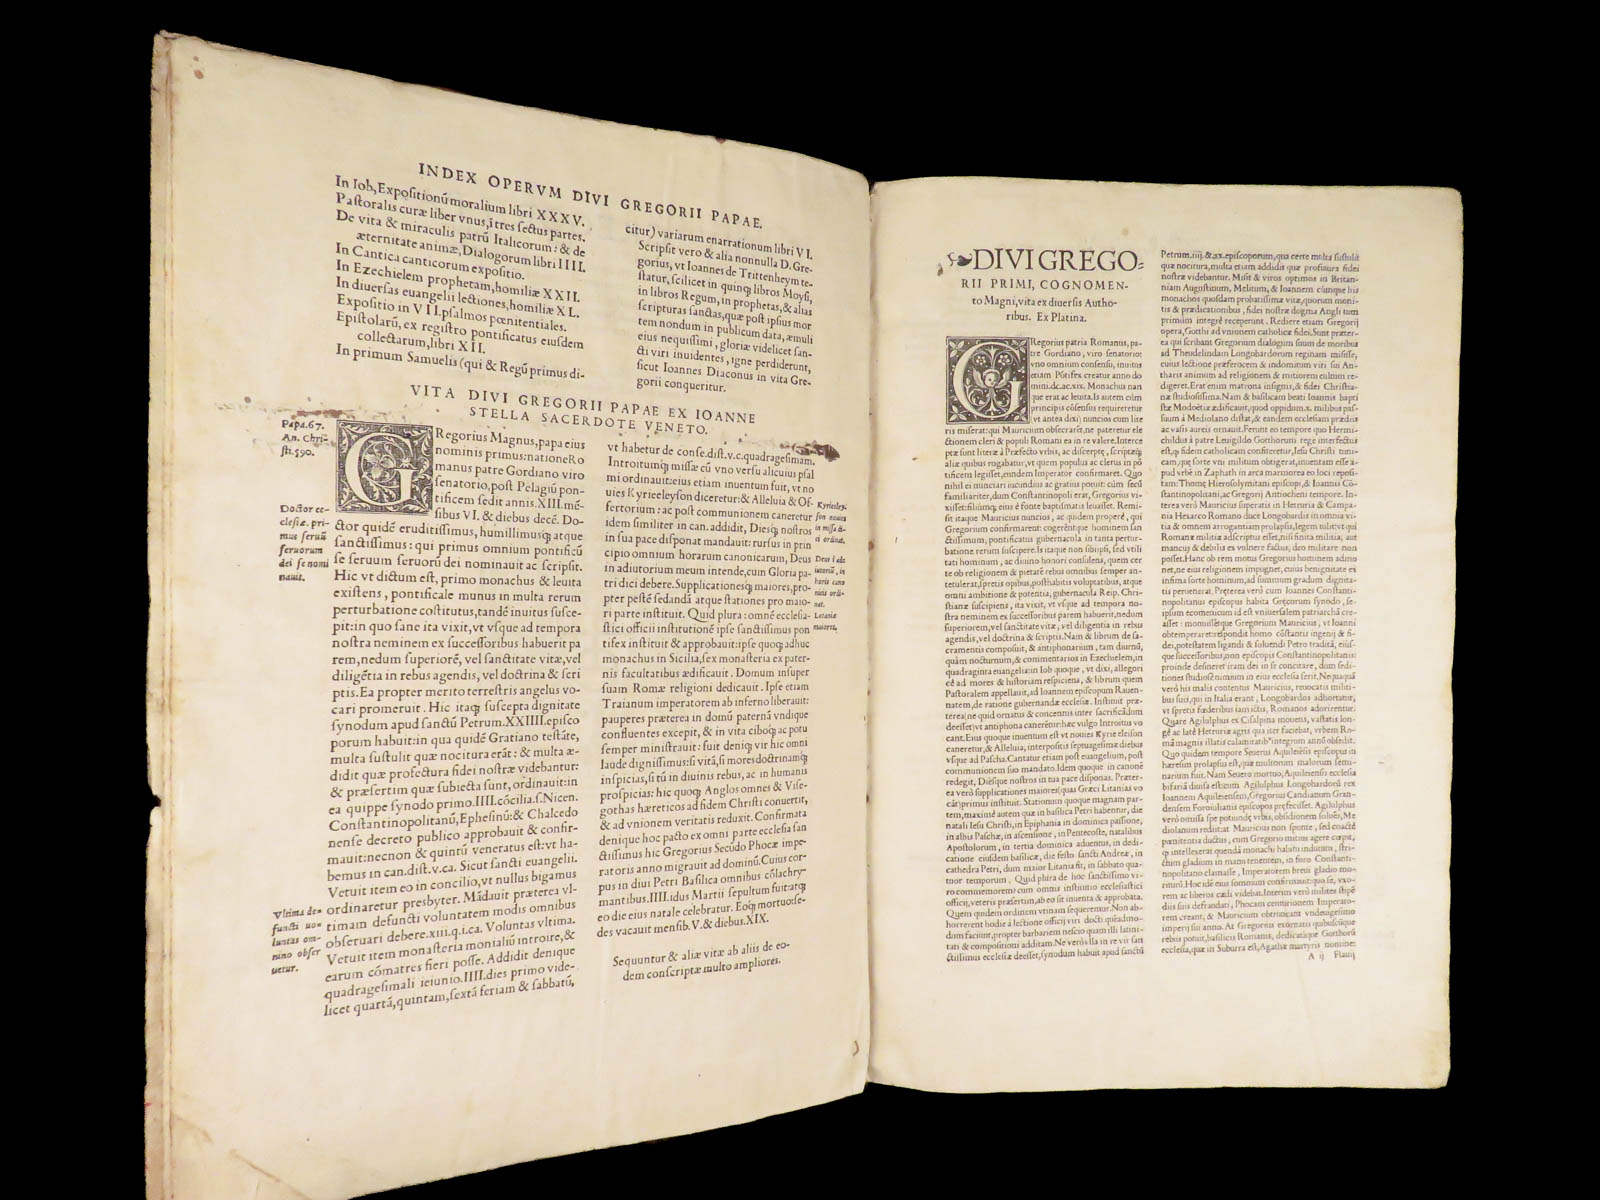 INDEX OPERVM DIVI GREGORII PAPAE.
In Iob,Expositionũ moralium libri XXXV.
Pastoralis curæ liber vnus,ĩ tres sectus partes.
De vita & miraculis patrũ Italicorum: & de
æternitate animæ,Dialogorum libri IIII.
In Cantica canticorum expositio.
In Ezechielem prophetam,homiliæ XXII.
In diuersas euangelii lectiones,homiliæ XL.
Expositio in VII.psalmos pœnitentiales.
Epistolarũ, ex registro pontificatus eiusdem
collectarum,libri XII.
In primum Samuelis (qui & Regũ primus di-
citur) variarum enarrationum libri VI.
Scripsit vero & alia nonnulla D. Gre-
gorius, vt Ioannes de Trittenheym te-
statur, scilicet in quinq; libros Moysi,
in libros Regum, in prophetas, & alias
scripturas sanctas, quæ post ipsius mor
tem nondum in publicum data, æmuli
eius nequissimi, gloriæ videlicet san-
cti viri inuidentes, igne perdiderunt,
sicut Ioannes Diaconus in vita Gre-
gorii conqueritur.
VITA DIVI GREGORII PAPAE EX IOANNE
STELLA SACERDOTE VENETO.
Papa.67.
An. Chri-
sti.590.
GRegorius Magnus, papa eius
nominis primus: natione Ro
manus patre Gordiano viro
senatorio, post Pelagiũ pon-
tificem sedit annis.XIII.mẽ-
sibus VI. & diebus decẽ. Do-
ctor quidẽ eruditissimus, humillimusq; atque
sanctissimus: qui primus omnium pontificũ
se seruum seruorũ dei nominauit ac scripsit.
Doctor ec-
clesiæ. pri-
mus seruũ
seruorum
dei se nomi
nauit.
Hic vt dictum est, primo monachus & leuita
existens, pontificale munus in multa rerum
perturbatione cõstitutus, tandẽ inuitus susce-
pit: in quo sane ita vixit, vt vsque ad tempora
nostra neminem ex successoribus habuerit pa
rem, nedum superiorẽ, vel sanctitate vitæ, vel
diligẽtia in rebus agendis, vel doctrina & scri
ptis. Ea propter merito terrestris angelus vo-
cari promeruit. Hic itaq; suscepta dignitate
synodum apud sanctũ Petrum. XXIIII. episco
porum habuit: in qua quidẽ Gratiano testãte,
multa sustulit quæ nocitura erãt: & multa æ-
didit quæ profectura fidei nostræ videbantur:
& præsertim quæ subiecta sunt, ordinauit: in
ea quippe synodo primo. IIII. cõcilia. s. Nicen.
Constantinopolitanũ, Ephesinũ: & Chalcedo
nense decreto publico approbauit & confir-
mauit: necnon & quintũ veneratus est: vt ha-
bemus in can. dist. v. ca. Sicut sancti euangelii.
Vetuit item eo in concilio, vt nullus bigamus
ordinaretur presbyter. Mãdauit præterea vl-
timam defuncti voluntatem modis omnibus
obseruari debere. xiii. q. i. ca. Voluntas vltima.
Vltima de=
functi uo=
luntas om-
nino obser
uetur.
Vetuit item monasteria monialiũ introire, &
earum cõmatres fieri posse. Addidit denique
quadragesimali ieiunio. IIII. dies primo vide-
licet quartã, quintam, sextã feriam & sabbatũ,
vt habetur de conse. dist. v. c. quadragesimam.
Introitumq; missæ cũ vno versu alicuius psal
mi ordinauit: eius etiam inuentum fuit, vt no
uies Kyrieeleyson diceretur: & Alleluia & Of-
fertorium: ac post communionem caneretur
idem similiter in can. addidit, Diesq; nostros
in sua pace disponat mandauit: rursus in prin
cipio omnium horarum canonicarum, Deus
in adiutorium meum intende, cum Gloria pa-
tri dici debere. Supplicationesq; maiores, pro-
pter pestẽ sedandã atque stationes pro maio-
ri parte instituit. Quid plura: omnẽ ecclesia-
stici officii institutionẽ ipse sanctissimus pon
tifex instituit & approbauit: ipse quoq; adhuc
monachus in Sicilia, sex monasteria ex pater-
nis facultatibus ædificauit. Domum insuper
suam Romæ religioni dedicauit. Ipse etiam
Traianum imperatorem ab inferno liberauit:
pauperes præterea in domũ paternã vndique
confluentes excepit, & in vita ciboq; ac potu
semper ministrauit: fuit deniq; vir hic omni
laude dignissimus: si vitã, si mores doctrinamq;
inspicias, si tũ in diuinis rebus, ac in humanis
prospicias: hic quoq; Anglos omnes & Vise-
gothas hæreticos ad fidem Christi conuertit,
& ad vnionem veritatis reduxit. Confirmata
denique hoc pacto ex omni parte ecclesia san
ctissimus hic Gregorius Secũdo Phocæ impe-
ratoris anno migrauit ad dominũ. Cuius cor-
pus in diui Petri Basilica omnibus cõlachry-
mantibus. IIII. idus Martii sepultum fuit: atq;
eo die eius natale celebratur. Eoq; mortuo: se-
des vacauit mensib. V. & diebus. XIX.
Kyrieeley-
son nouies
in missa di-
ci ordinat.
Deus ĩ adi
utoriũ, in
horis cano
nius ordi-
nat.
Letaniæ
maiores.
Sequuntur & aliæ vitæ ab aliis de eo-
dem conscriptæ multo ampliores.
DIVI GREGO=
RII PRIMI, COGNOMEN-
to Magni, vita ex diuersis Autho-
ribus. Ex Platina.
GRegorius patria Romanus, pa-
tre Gordiano, viro senatorio:
vno omnium consensu, inuitus
etiam Põtifex creatur anno do
mini.dc.ac.xix. Monachus nan
que erat ac leuita. Is autem cũm
principis cõsensus requireretur
(vt antea dixi) nuncios cum lite
ris miserat: qui Mauricium obsecrarẽt, ne pateretur ele
ctionem cleri & populi Romani ea in re valere. Interce
ptæ sunt literæ à Præfecto vrbis, ac discerptę, scriptæq;
aliæ quibus rogabatur, vt quem populus ac clerus in põ
tificem legisset, eundem Imperator confirmaret. Quo
nihil ei nunciari iucundius ac gratius potuit: cùm secũ
familiariter, dum Constantinopoli erat, Gregorius vi-
xisset: filiũmq; eius è fonte baptismatis leuasset. Remi-
sit itaque Mauricius nuncios, ac quidem properè, qui
Gregorium confirmarent: cogerẽntque hominem san
ctissimum, pontificatus gubernacula in tanta pertur-
batione rerum suscipere. Is itaque non sibiipsi, sed vtili
tati hominum, ac diuino honori consulens, quem cer
te ob religionem & pietatẽ rebus omnibus semper an-
tetulerat, spretis opibus, posthabitis voluptatibus, atque
omni ambitione & potentia, gubernacula Reip. Chri-
stianæ suscipiens, ita vixit, vt vsque ad tempora no-
stra neminem ex successoribus parem habuerit, nedum
superiorem, vel sanctitate vitæ, vel diligentia in rebus
agendis, vel doctrina & scriptis. Nam & librum de sa-
cramentis composuit, & antiphonarium, tam diurnũ,
quàm nocturnum, & commentarios in Ezechielem, in
quadraginta euangelia: in Iob quoque, vt dixi, allegori
cè ad mores & historiam respiciens, & librum quem
Pastoralem appellauit, ad Ioannem episcopum Rauen-
natem, de ratione gubernandæ ecclesiæ. Instituit præ-
terea (ne quid ornatus & concentus inter sacrificãdum
deesset) vt antiphona canerẽtur: hæc vulgo Introitus vo
cant. Eius quoque inuentum est vt nouies Kyrie eleison
caneretur, & Alleluia, interpositis septuagesimæ diebus
vsque ad Pascha. Cantatur etiam post euangelium, post
communionem suo mandato. Idem quoque in canonẽ
redegit, Diésque nostros in tua pace disponas. Præter-
ea verò supplicationes maiores (quas Græci Litanias vo
cãt) primus instituit. Stationum quoque magnam par-
tem, maximè autem quæ in basilica Petri habentur, die
natali Iesu Christi, in Epiphania in dominica passione,
in albis Paschæ, in ascensione, in Pentecoste, natalibus
Apostolorum, in tertia dominica aduentus, in dedi-
catione eiusdem basilicæ, die festo sancti Andreæ, in
cathedra Petri, dum maior Litania fit, in sabbato qua-
tuor temporum. Quid plura de hoc sanctissimo vi-
ro commemorem? cum omnis institutio ecclesiastici
officij, veteris præsertim, ab eo sit inuenta & approbata.
Quem quidem ordinem vtinam sequeremur. Non ab-
horrerent hodie à lectione officij viri docti quẽadmo-
dum faciunt, propter barbariem nescio quam illi latini-
tati & compositioni additam. Ne verò vlla in re vir san
ctissimus ecclesiæ deesset, synodum habuit apud sanctũ
Petrum. iiij. & xx. episcoporum, qua certe multa sustulit
quæ nocitura, multa etiam addidit quæ profutura fidei
nostræ videbantur. Misit & viros optimos in Britan-
niam Augustinum, Melitum, & Ioannem cùmque his
monachos quosdam probatissimæ vitæ, quorum moni-
tis & prædicationibus, fidei nostræ dogma Angli tum
primùm integrè receperunt. Rediere etiam Gregorij
opera, Gotthi ad vnionem catholicæ fidei. Sunt præter-
ea qui scribant Gregorium dialogum suum de moribus
ad Theudelindam Longobardorum reginam misisse,
cuius lectione præferocem & indomitum viti sui Au-
tharis animum ad religionem & mitiorem cultum re-
digeret. Erat enim matrona insignis, & fidei Christia-
næ studiosissima. Nam & basilicam beati Ioannis bapti
stæ Modoëtiæ ædificauit, quod oppidum. x. milibus pas-
suum à Mediolano distat, & eandem ecclesiam prædiis
ac vasis aureis ornauit. Ferunt eo tempore quo Hermi-
childus à patre Leuigildo Gotthorum rege interfectus
est, q; fidem catholicam confiteretur, Iesu Christi tuni-
cam, quę sorte vni militum obtigerat, inuentam esse a-
pud vrbẽ in Zaphath in arca marmorea eo loci reposi-
tam: Thomę Hierosolymitani episcopi, & Ioannis Cõ-
stantinopolitani, ac Gregorij Antiocheni tempore. In-
terea verò Mauricius superatis in Hetruria & Campa-
nia Hexarco Romano duce Longobardis in omnia vi-
tia & omnem arrogantiam prolapsis, legem tulit: vt qui
Romanæ militiæ adscriptus esset, nisi finita militia, aut
mancus & debilis ex vulnere factus, deo militare non
posset. Hanc ob rem motus Gregorius hominem admo
net, ne eius religionem impugnet, cuius benignitate ex
infima sorte hominum, ad summum gradum dignita-
tis peruenerat. Præterea verò cum Ioannes Constanti-
nopolitanus episcopus habita Gręcorum synodo, se-
ipsum œcumenicum id est vniuersalem patriarchã cre-
asset: monuissétque Gregorium Mauricius, vt Ioanni
obtemperaret: respondit homo cõstantis ingenij & fi-
dei, potestatem ligandi & soluendi Petro traditã, eiús-
que successoribus, non episcopis Constantinopolitanis:
proinde desineret iram dei in se concitare, dum sedi-
tiones studiosè nimium in eius ecclesia serit. Nequaquã
verò his malis contentus Mauricius, reuocatis militi-
bus suis, qui in Italia erant, Longobardos adhortatur,
vt spretis fœderibus iam ictis, Romanos adorirentur.
Quare Agilulphus ex Cisalpina mouens, vastatis lon-
gè ac latè Hetruriæ agris qua iter faciebat, vrbem Ro-
mã magnis illatis calamitatibus integrum annũ obsedit.
Quo quidem tempore Seuerus Aquileiẽsis episcopus in
hæresim prolapsus est, quæ multorum malorum semi-
narium fuit. Nam Seuero mortuo, Aquileiensis ecclesia
bifariã diuisa est: cum Agilulphus Longobardorũ rex
Ioannem Aquileiensem, Gregorius Candianum Gran-
densem Foroiuliani episcopos præfecisset. Agilulphus
verò omissa spe potiundę vrbis, obsidionem soluẽs, Me
diolanum redit: at Mauricius non sponte, sed coactè
pœnitentia ductus, cum Gregorio mitius agere cœpit,
q; intellexerat quendã monachi habitu indutum, stri-
ctum gladium in manu tenentem, in foro Constanti-
nopolitano clamasse, Imperatorem breui gladio mo-
riturũ. Hoc idẽ eius somnium confirmauit: quo se, vxo-
rem ac liberos cædi videbat. Interim verò milites stipẽ
diis suis defraudati, Phocam centurionem Imperato-
rem creant, & Mauricium obtruncant vndeuigesimo
imperij sui anno. At Gregorius exornatis quibuscũque
rebus potuit, basilicis Romanis, dedicatque Gotthorũ
ecclesia, quæ in Suburra est, Agathæ martyris nomine:
A ij Planij